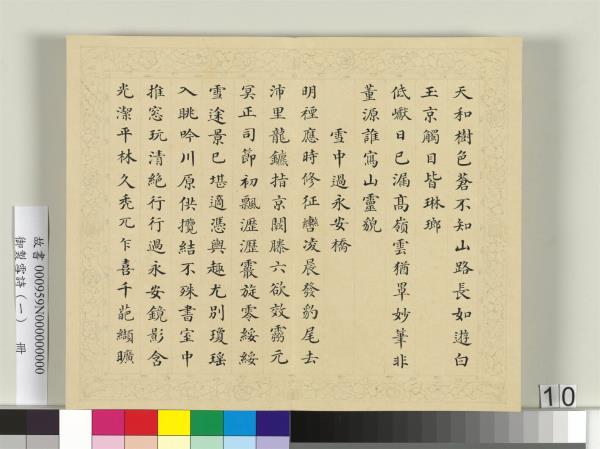 天和樹色蒼不知山路長如遊白
玉京觸目皆琳瑯
低巘日已漏高嶺雲猶罩妙筆非
董源誰寫山靈貌
雪中過永安橋
明禋應時修征轡凌晨發豹尾去
沛里龍鑣指京闕滕六欲效霧元
冥正司節初飄瀝瀝霰旋零綏綏
雪途景已堪適憑輿趣尤別瓊瑤
入眺吟川原供攬結不殊書室中
推窓玩清絶行行過永安鏡影含
光潔平林久禿兀乍喜千葩纈曠
故書 000959N000000000
御製雪詩(一) 冊
10